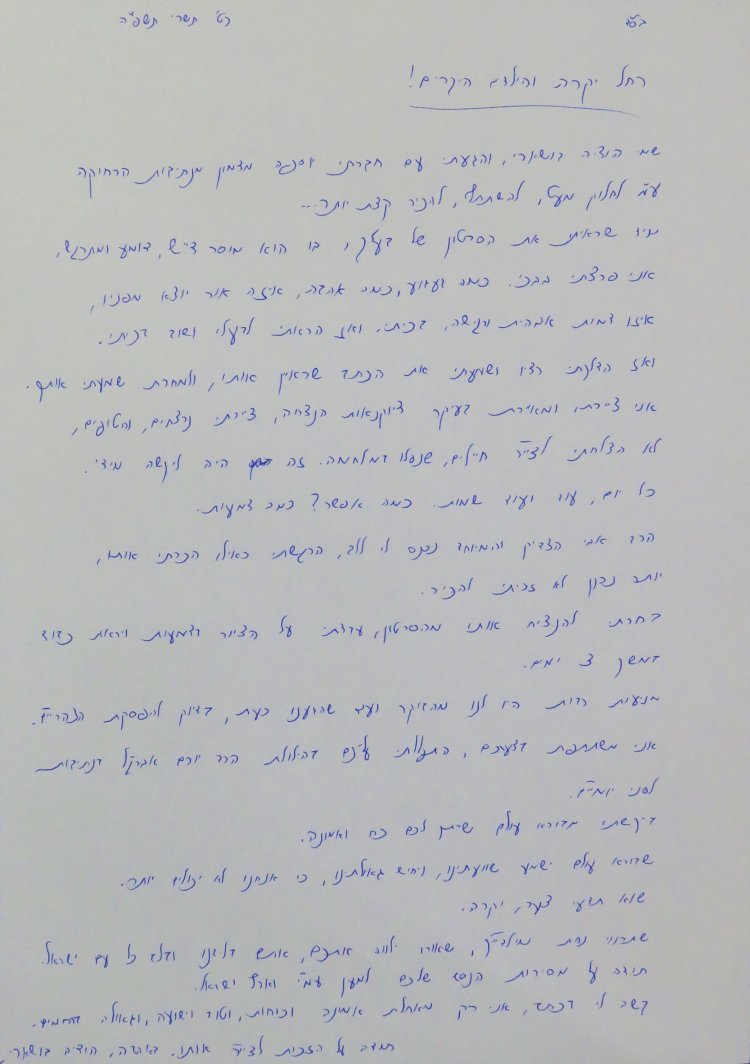 בס״ד
כט׳ תשרי תשפ״ה
רחל יקרה והילדים היקרים!
שמי הודיה בושארי, והגעתי עם חברתי יוספה מצמון מנתיבות הרחוקה
ע״מ לחלוק מעט, להשתתף, להכיר קצת יותר...
מיד שראיתי את הסרטון של בעלך, בו הוא מוסר ד״ש, דומע ומתרגש,
אני פרצתי בבכי. כמה געגוע, כמה אהבה, איזה אור יוצא מפניו,
איזו דמות אבהית רגישה, בכיתי. ואז הראתי לבעלי ושוב בכיתי.
ואז הדלקתי רדיו ושמעתי את הכתב שראיין אותו, ולמחרת שמעתי אותך.
אני ציירת, ומאיירת בעיקר דיוקנאות הנצחה, ציירתי נרצחים, וחטופים,
לא הצלחתי לצייר חיילים, שנפלו במלחמה. זה היה לי קשה מידי.
כל יום, עוד ועוד שמות. כמה אפשר? כמה דמעות.
הרב אבי הצדיק והמיוחד נכנס לי ללב, הרגשתי כאילו הכרתי אותו,
יותר נכון לא זכיתי להכיר.
בחרתי להנציח אותו מהסרטון, עבדתי על הציור בדמעות ויראת כבוד
במשך 3 ימים.
מניעות רבות היו לנו מהבוקר ועד שהגענו כעת, בדיוק להפסקת הצהריים.
אני משתתפת בצערכם, התפללתי עליכם בהילולת הרב יורם אברג׳ל בנתיבות
לפני יומיים.
ביקשתי מבורא עולם שייתן לכם כח ואמונה.
שבורא עולם ישמע שוועתינו, ויחיש גאולתינו, כי אנחנו לא יכולים יותר.
שלא תדעי צער, יקרה.
שתרווי נחת מילדייך, שאורו ילווה אתכם, אותם בליבנו ובלב כל עם ישראל.
תודה על מסירות הנפש שלכם למען עמ״י וארץ ישראל.
קשה לי לכתוב, אני רק מאחלת אמונה וכוחות, וטוב וישועה, וגאולה ברחמים.
תודה על הזכות לצייר אותו. באהבה, הודיה בושארי.